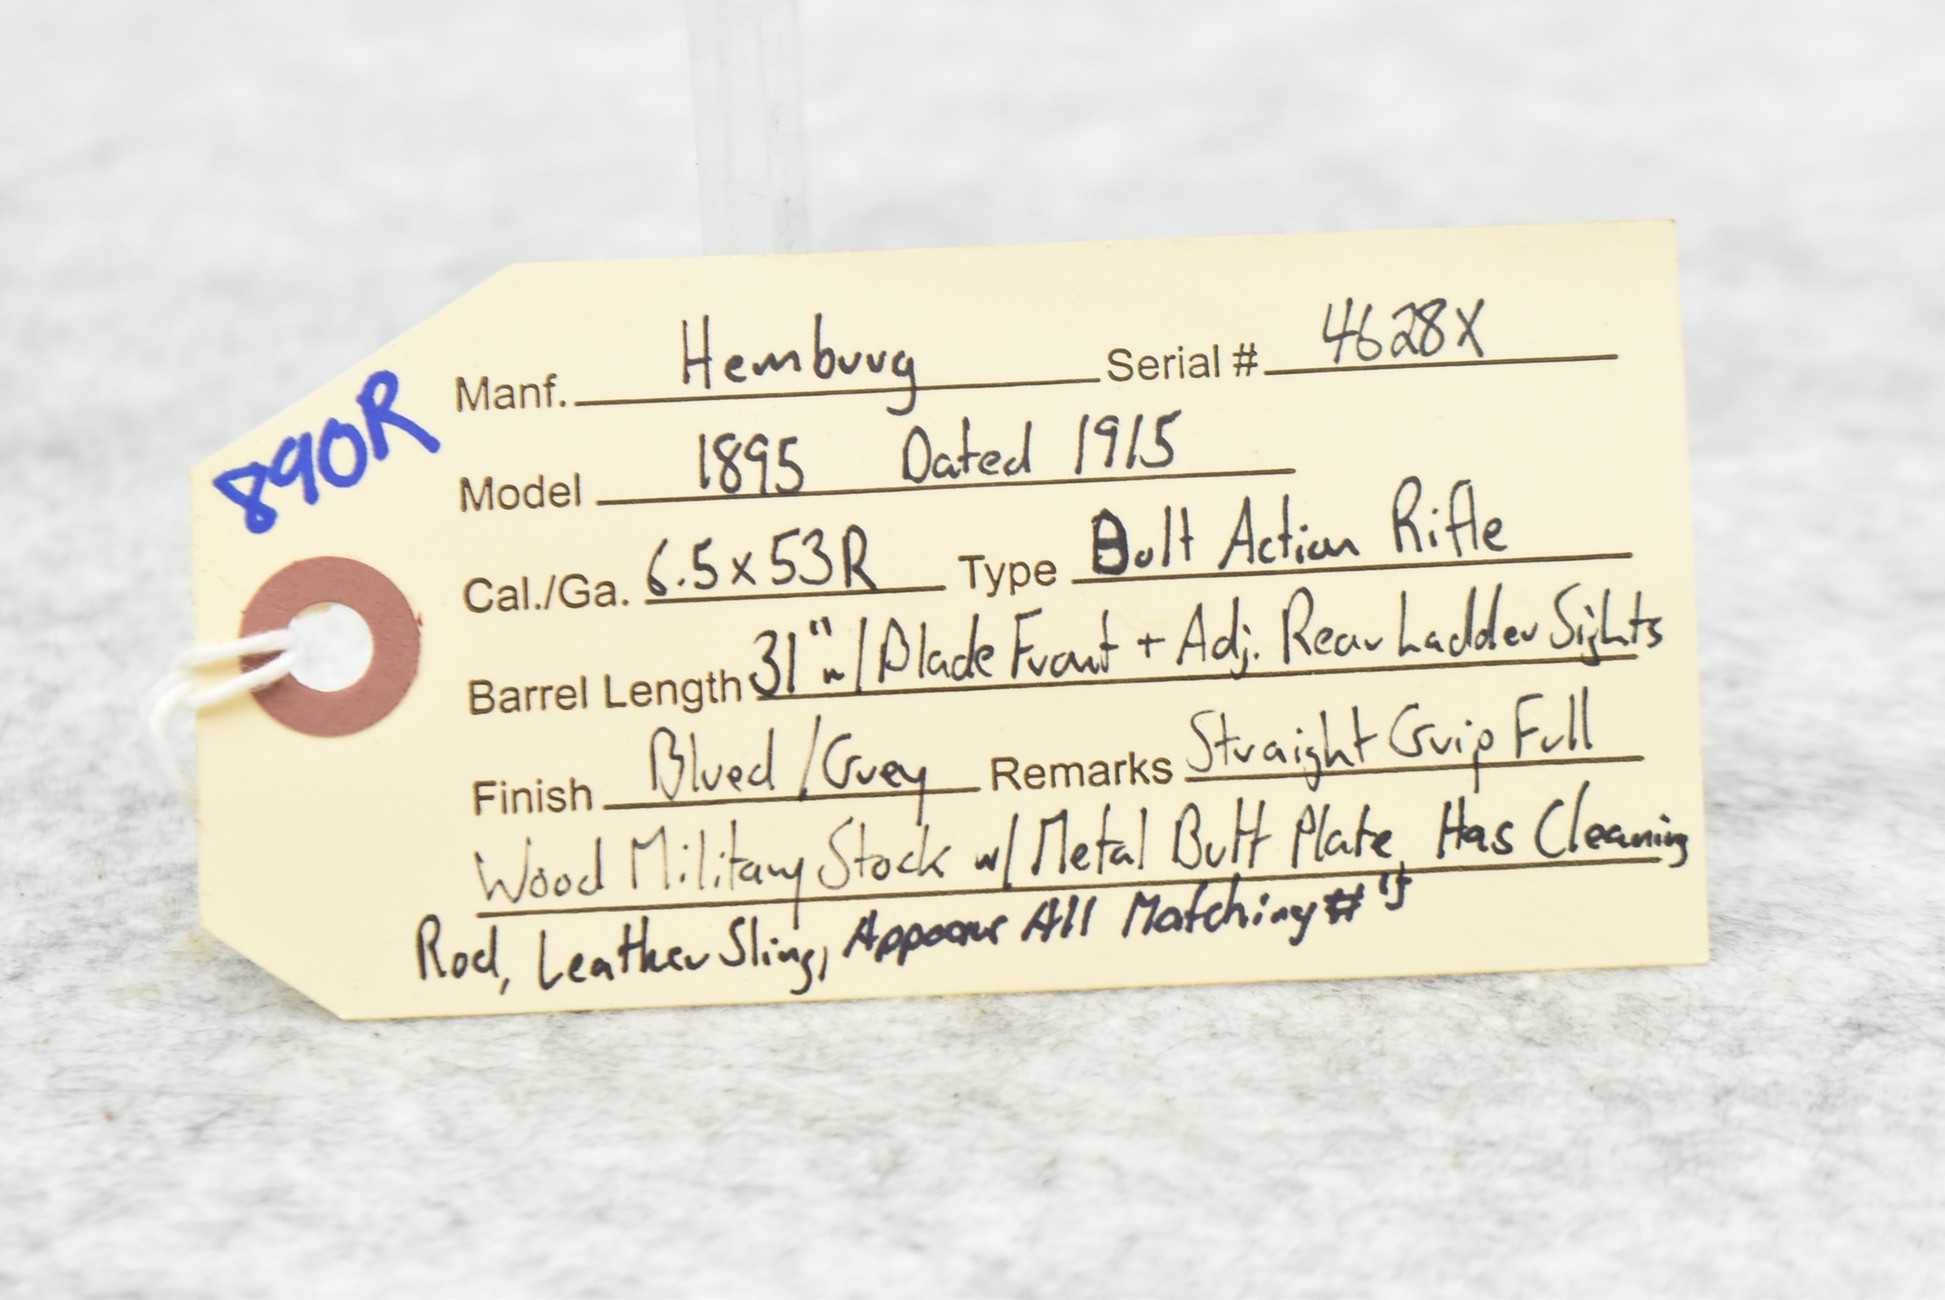 890R
Manf. Hemburg Serial # 4628X
Model 1895 Dated 1915
Cal./Ga. 6.5x53R Type Bolt Action Rifle
Barrel Length 31" w/ Blade Front + Adj. Rear Ladder Sights
Finish Blued/Grey Remarks Straight Grip Full
Wood Military Stock w/ Metal Butt Plate, Has Cleaning
Rod, Leather Sling, Appears All Matching #'s